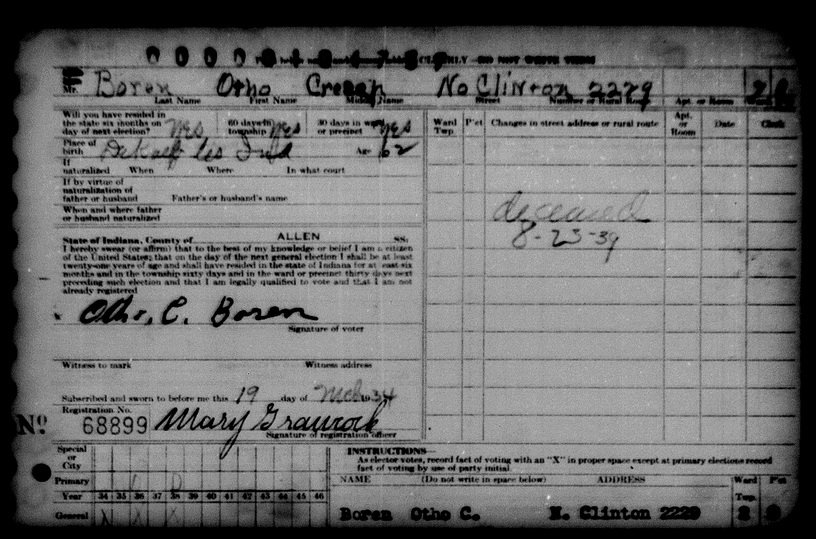 CLERLY—DO NOT WRITE THIS
Mr. Boren Otho No Clinton 2229
Last Name First Name Middle Name Street Number or Rural Route Apt. or Room
Will you have resided in the state six months on day of next election? Yes 60 days in township Yes 30 days in ward or precinct Yes
Place of birth DeKalb Co Ind Age 62
If naturalized When Where In what court
If by virtue of naturalization of father or husband Father's or husband's name
When and where father or husband naturalized
State of Indiana, County of ALLEN SS.
I hereby swear (or affirm) that to the best of my knowledge or belief I am a citizen
of the United States; that on the day of the next general election I shall be at least
twenty-one years of age and shall have resided in the state of Indiana for at east six
months and in the township sixty days and in the ward or precinct thirty days next
preceding such election and that I am legally qualified to vote and that I am not
already registered
Otho, C. Boren
Signature of voter
Witness to mark Witness address
Subscribed and sworn to before me this 19 day of Mch 1934
Registration No.
No 68899 Mary
Signature of registration officer
Ward Twp. P'ct Changes in street address or rural route Apt. or Room Date Clerk
deceased
8-23-39
Special or City
Primary
Year 34 35 36 37 38 39 40 41 42 43 44 45 46
General N X X
INSTRUCTIONS—
As elector votes, record fact of voting with an "X" in proper space except at primary elections record
fact of voting by use of party initial.
NAME (Do not write in space below) ADDRESS Ward Twp. P'ct
Boren Otho C. N. Clinton 2229 2